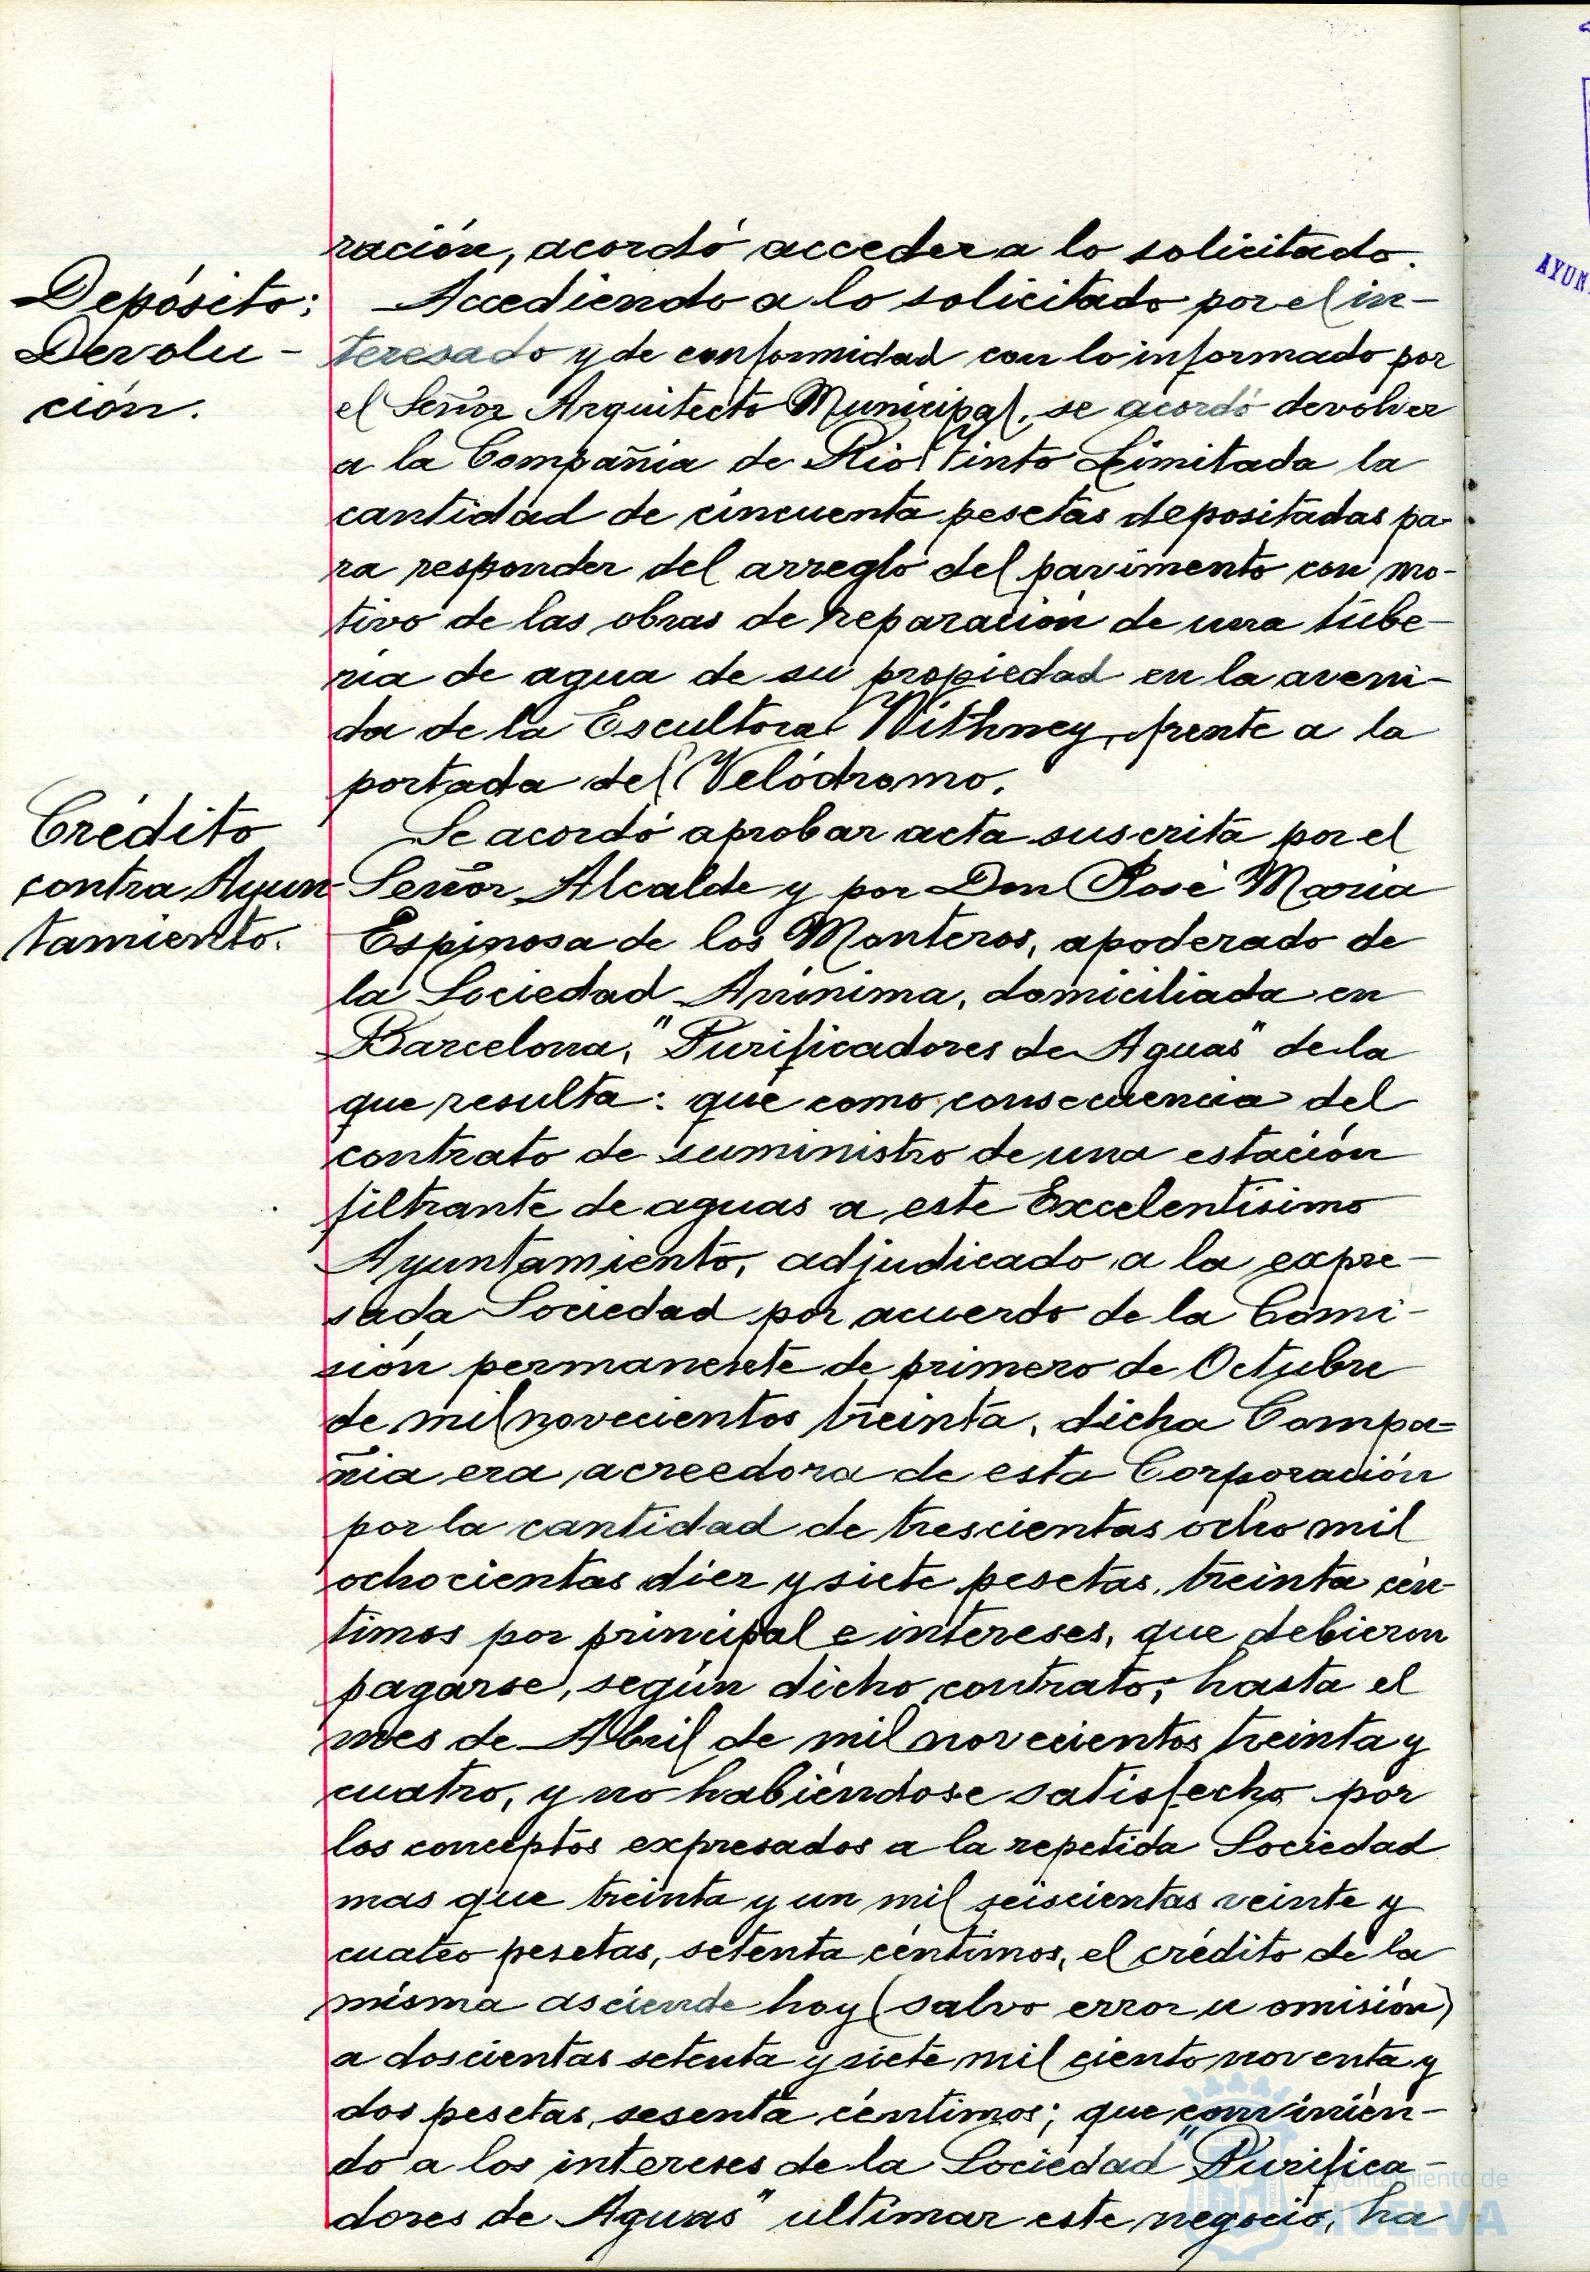 ración, acordó acceder a lo solicitado.
Depósito:
Devolu-
ción.
Accediendo a lo solicitado por el in-
teresado y de conformidad con lo informado por
el Señor Arquitecto Municipal, se acordó devolver
a la Compañia de Rio Tinto Limitada la
cantidad de cincuenta pesetas depositadas pa-
ra responder del arreglo del pavimento con mo-
tivo de las obras de reparación de una tube-
ria de agua de su propiedad en la aveni-
da de la Escultora Withney, frente a la
portada del Velódromo.
Crédito
contra Ayun
tamiento.
Se acordó aprobar acta suscrita por el
Señor Alcalde y por Don José Maria
Espinosa de los Monteros, apoderado de
la Sociedad Anónima, domiciliada en
Barcelona, "Purificadores de Aguas" de la
que resulta: que como consecuencia del
contrato de suministro de una estación
filtrante de aguas a este Excelentisimo
Ayuntamiento, adjudicado a la expre-
sada Sociedad por acuerdo de la Comi-
sión permanente de primero de Octubre
de mil novecientos treinta, dicha Compa=
ñia era acreedora de esta Corporación
por la cantidad de trescientas ocho mil
ochocientas diez y siete pesetas, treinta cén-
timos por principal e intereses, que debieron
pagarse, según dicho contrato, hasta el
mes de Abril de mil novecientos treinta y
cuatro, y no habiéndose satisfecho por
los conceptos expresados a la repetida Sociedad
mas que treinta y un mil seiscientas veinte y
cuatro pesetas, setenta céntimos, el crédito de la
misma asciende hoy (salvo error u omisión)
a doscientas setenta y siete mil ciento noventa y
dos pesetas, sesenta céntimos; que convinién-
do a los intereses de la Sociedad "Purifica-
dores de Aguas" ultimar este negocio, ha
AYUN
Ayuntamiento de
HUELVA